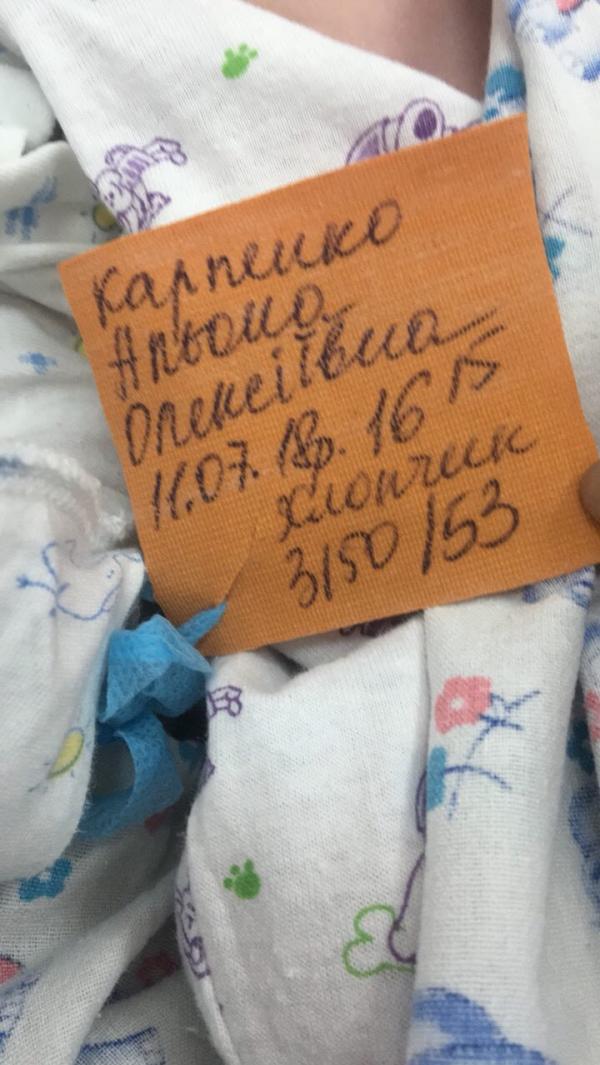 Карпенко
Альона
Олексіївна
11.07. 18р. 16 15
хлопчик
3150/53